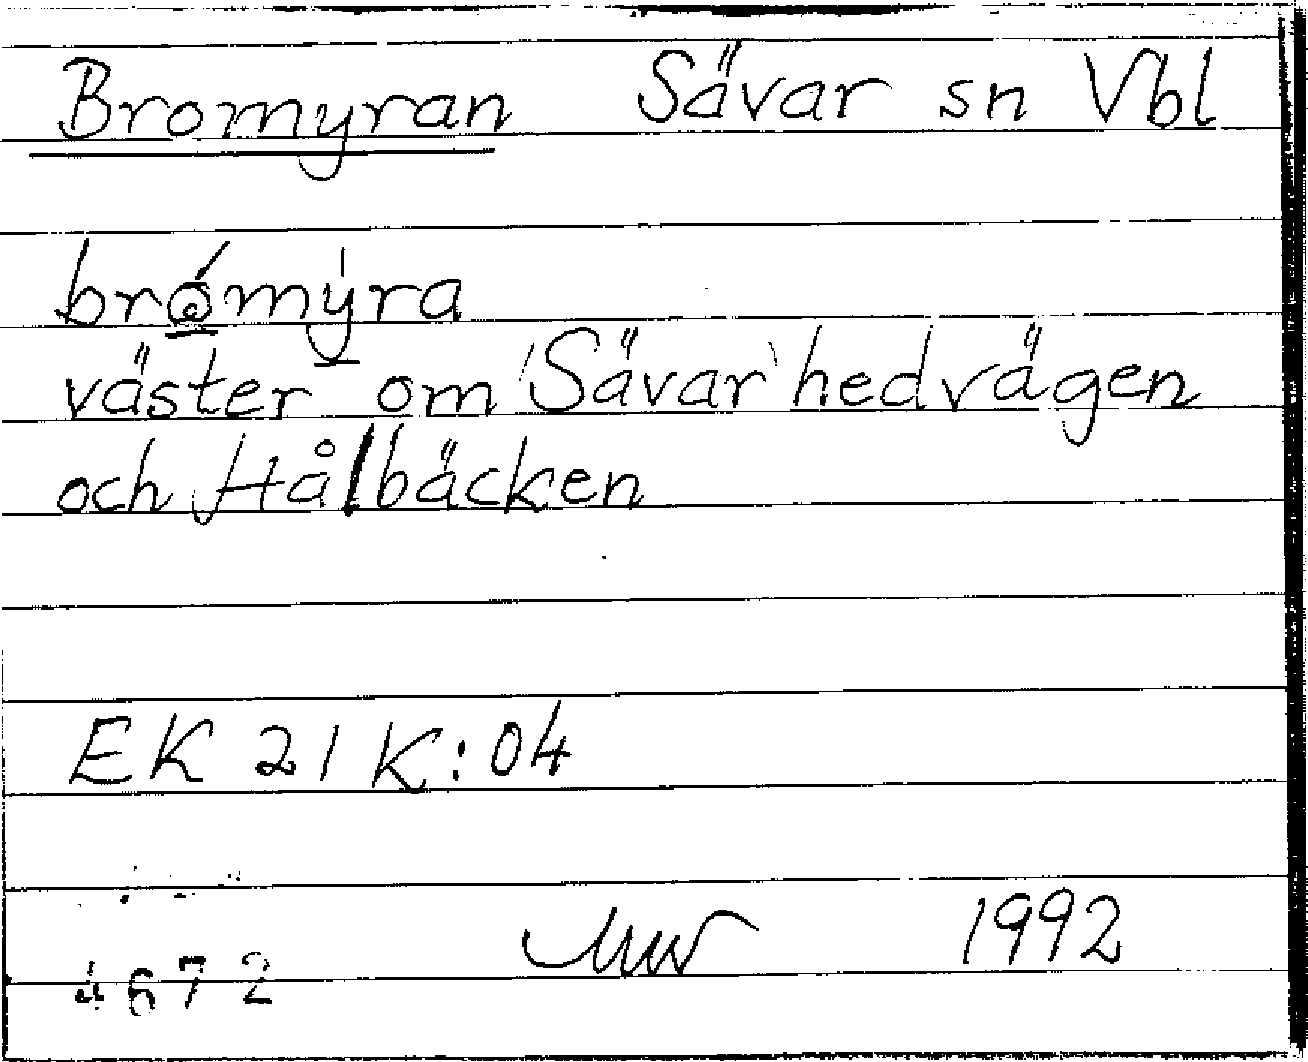 Bromyran Sävar sn Vbl
brómy̍ra
väster om Sävarhedvägen
och Hålbäcken
EK 21 K:04
1992
4672